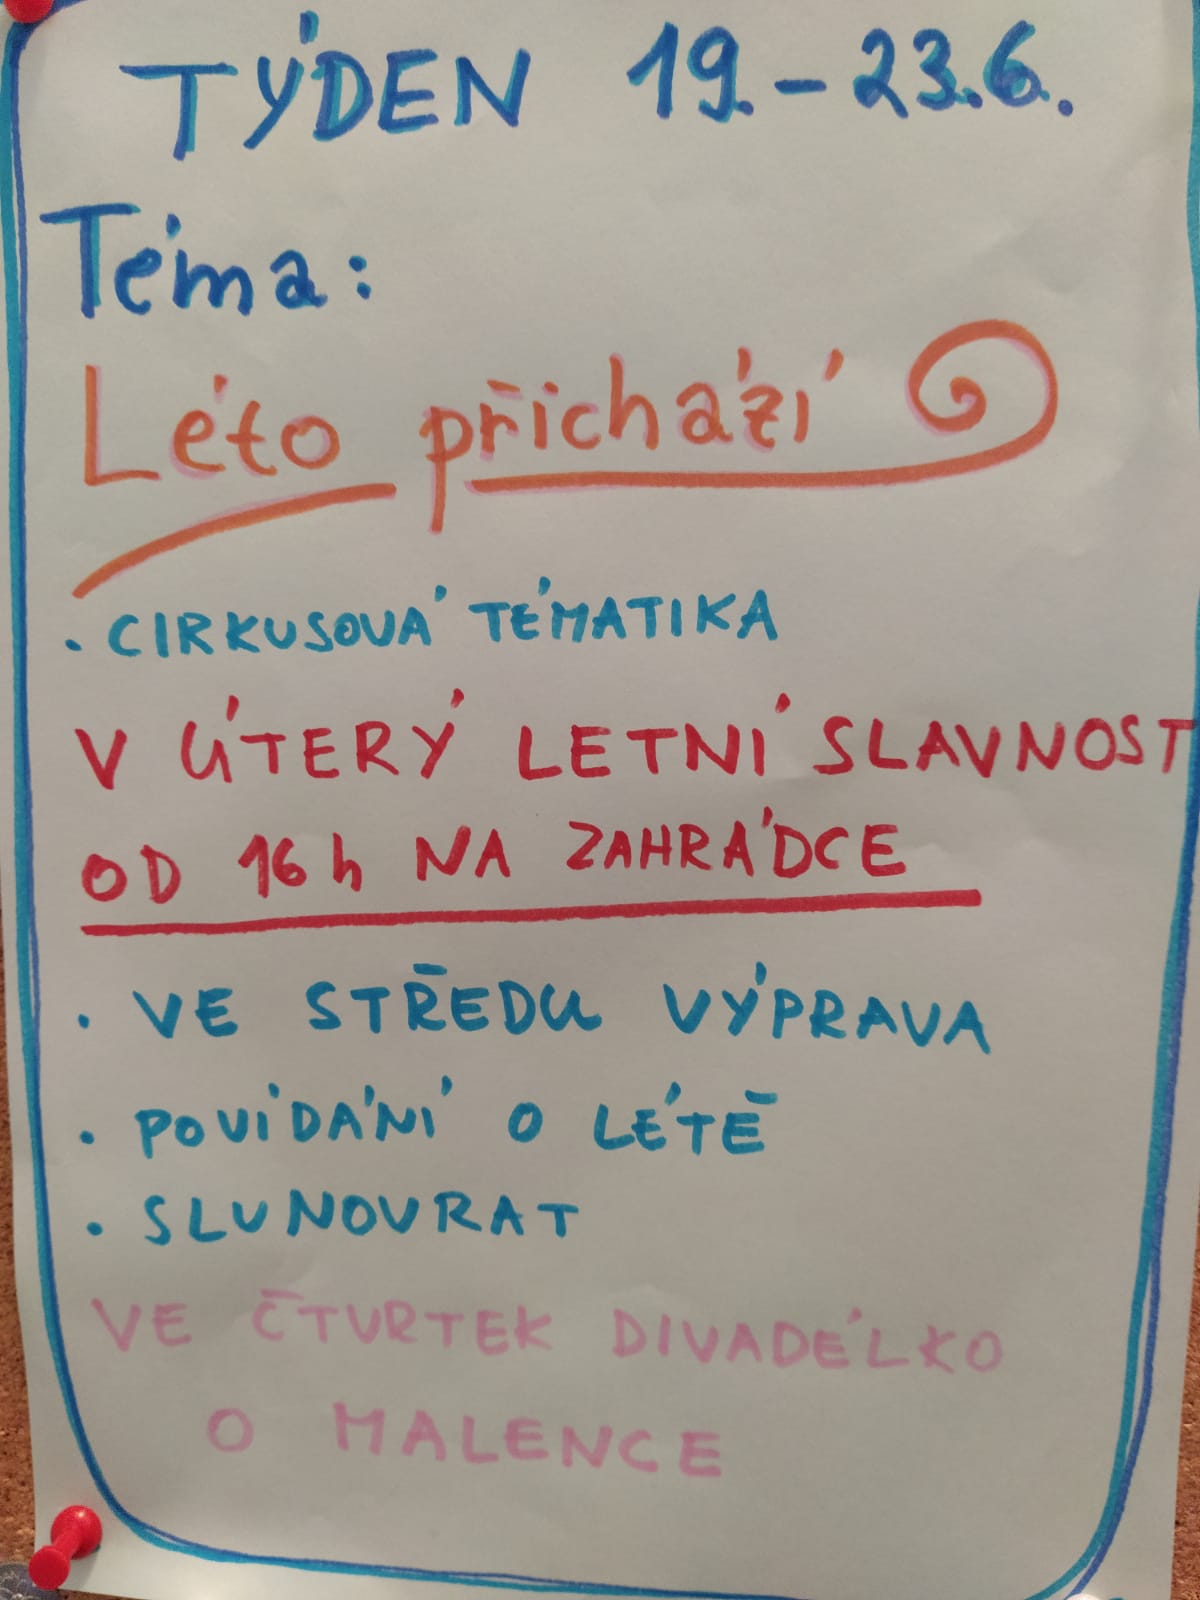 TÝDEN 19. - 23.6.
Téma:
Léto přichází
• CIRKUSOVÁ TÉMATIKA
V ÚTERÝ LETNÍ SLAVNOST
OD 16h NA ZAHRÁDCE
• VE STŘEDU VÝPRAVA
• POVÍDÁNÍ O LÉTĚ
• SLUNOVRAT
VE ČTVRTEK DIVADÉLKO
O MALENCE